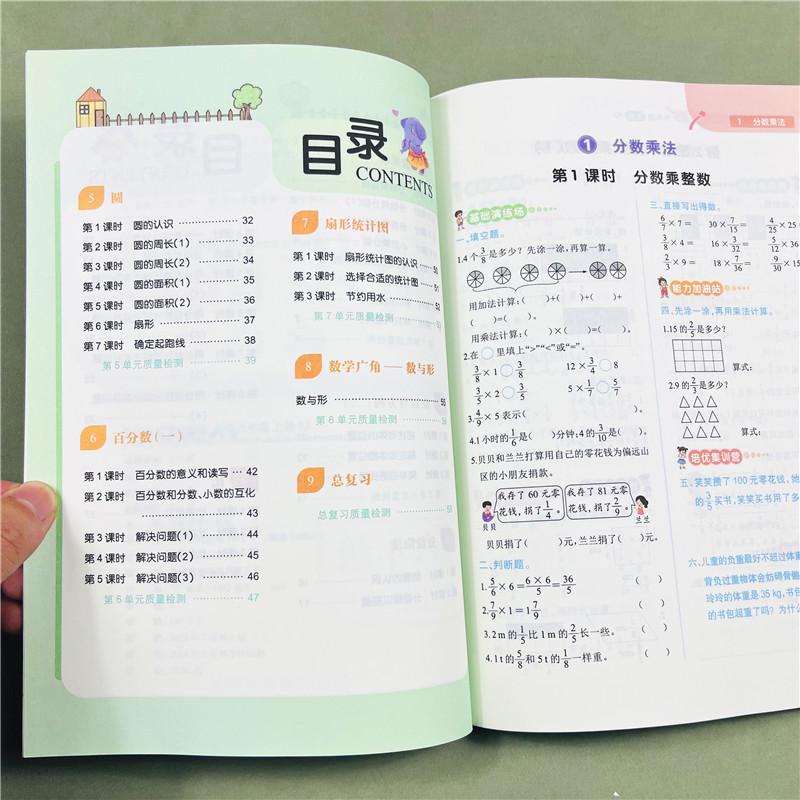 目录
CONTENTS
5 圆
第1课时 圆的认识 ………………… 32
第2课时 圆的周长(1) ………… 33
第3课时 圆的周长(2) ………… 34
第4课时 圆的面积(1) ………… 35
第5课时 圆的面积(2) ………… 36
第6课时 扇形 ………………… 37
第7课时 确定起跑线 ………… 38
第5单元质量检测 ………… 39
6 百分数(一)
第1课时 百分数的意义和读写 … 42
第2课时 百分数和分数、小数的互化
………………… 43
第3课时 解决问题(1) ………… 44
第4课时 解决问题(2) ………… 45
第5课时 解决问题(3) ………… 46
第6单元质量检测 ………… 47
7 扇形统计图
第1课时 扇形统计图的认识 … 50
第2课时 选择合适的统计图 … 51
第3课时 节约用水 ………… 52
第7单元质量检测 …………
8 数学广角——数与形
数与形 ………………… 55
第8单元质量检测 …………
9 总复习
总复习质量检测 …………
1 分数乘法
1 分数乘法
第1课时 分数乘整数
基础演练场
一、填空题。
1.4个3/8是多少?先涂一涂,再算一算。
用加法计算:( )+( )+( )+
( )=( )。
用乘法计算:( )×( )=( )。
2.在○里填上“>”“<”或“=”。
3/8×1○3/8 12×3/4○8
3/5×2○3/5 5×1/7○5/7
3.4/9×5表示( )
4.1小时的1/6是( )分钟;4的3/10是( )。
5.贝贝和兰兰打算用自己的零花钱为偏远山
区的小朋友捐款。
我存了60元零
花钱,捐了1/4。
我存了81元零
花钱,捐了2/9。
贝贝
兰兰
贝贝捐了( )元,兰兰捐了( )元。
二、判断题。
1.5/6×6=6×6/5=36/5 ( )
2.7/9×1=1 7/9 ( )
3.2 m的1/5比1 m的2/5长一些。 ( )
4.1 t的5/8和5 t的1/8一样重。 ( )
三、直接写出得数。
6/7×7= 30×7/15= 4/25×25
3/8×4= 16×3/32= 5/12×36
2/3×9= 18×7/36= 9/30×15
能力加油站
四、先涂一涂,再用乘法计算。
1.15的2/5是多少?
算式:
2.9的2/3是多少?
算式:
培优集训营
五、笑笑攒了100元零花钱,她
的3/5买书,笑笑买书用了多
六、儿童的负重最好不超过体重
背负过重物体会妨碍骨骼
玲玲的体重是35 kg,书包
的书包超重了吗?为什么